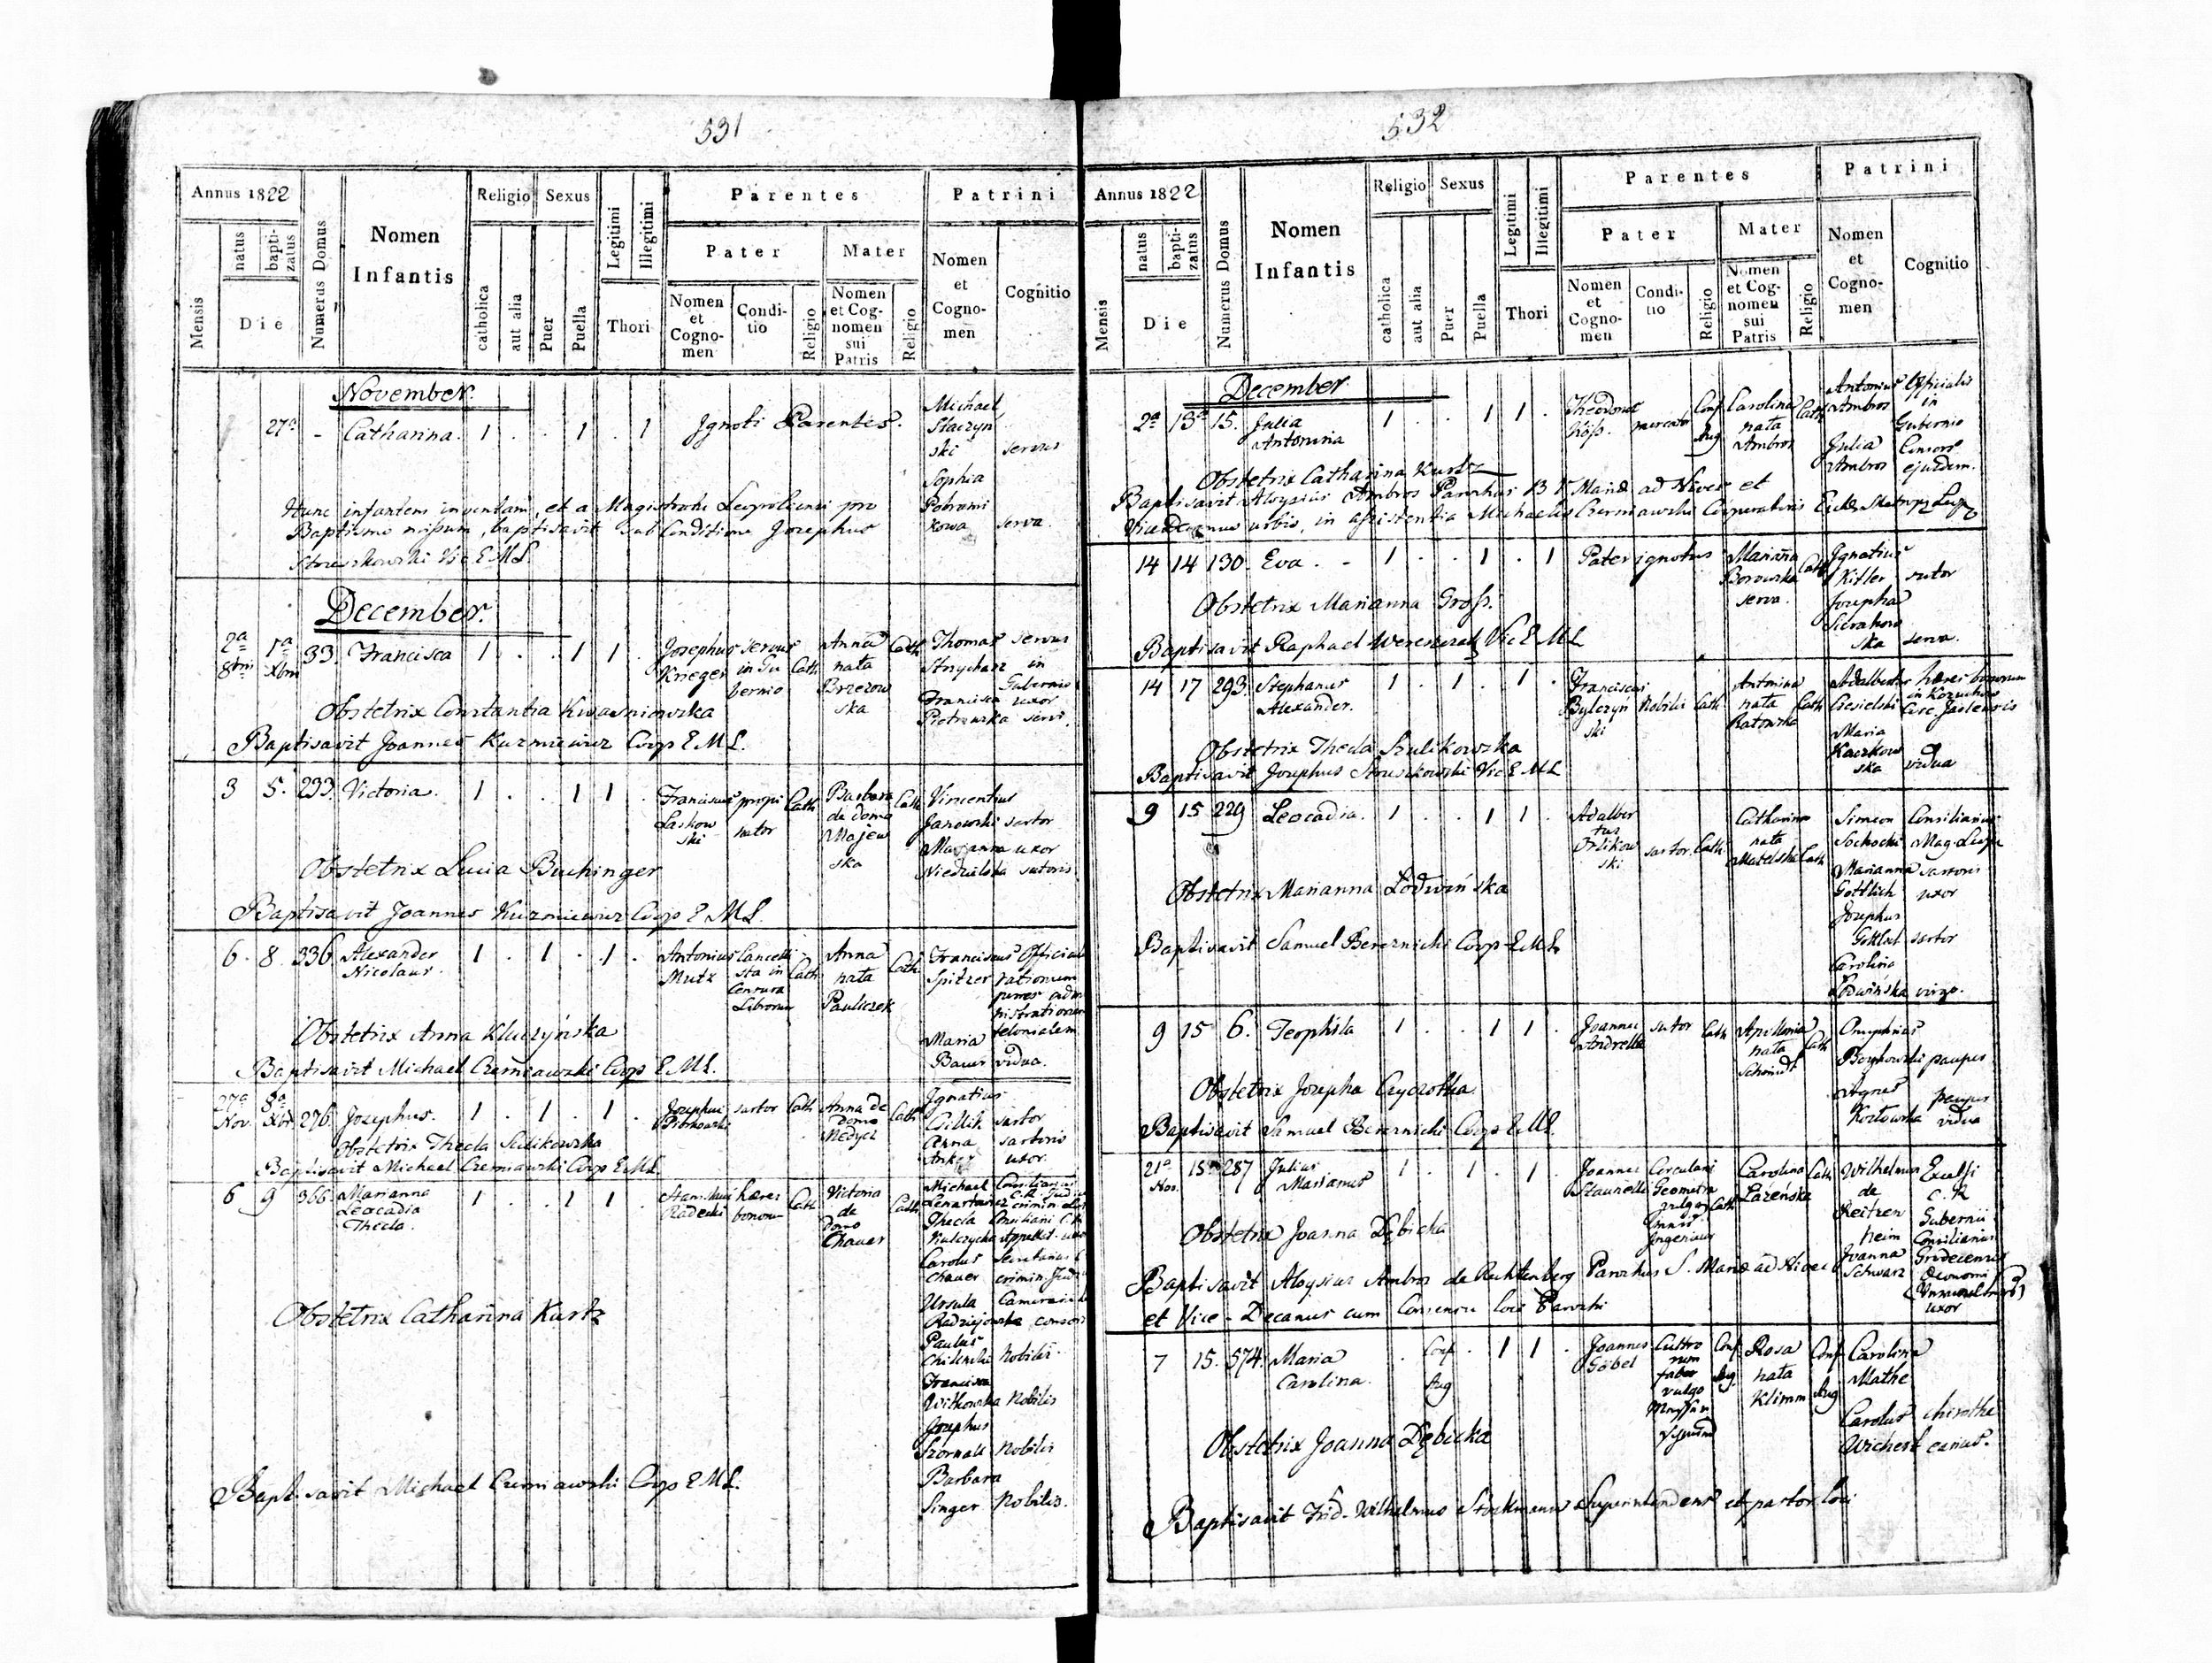 531
Annus 1822
Mensis
natus
bapti-
zatus
Die
Numerus Domus
Nomen
Infantis
Religio
catholica
aut alia
Sexus
Puer
Puella
Legitimi
Illegitimi
Thori
Parentes
Pater
Nomen
et
Cogno-
men
Condi-
tio
Religio
Mater
Nomen
et Cog-
nomen
sui
Patris
Religio
Patrini
Nomen
et
Cogno-
men
Cognitio
November.
27a - Catharina. 1 . . 1 . 1 Ignoti Parentes.
Michael
ski servus
Sophia
kowa serva.
Hunc infantem inventam, et a Magistratu Leopoliensi pro
Baptismo missum, baptisavit sub Conditione Josephus
Struszkowski Vic E M L.
December.
2a 8bris 1a Xbris 33. Francisca 1 . . 1 1 .
Josephus Krieger servus in Gubernio Cath
Anna nata Brzezowska Cath
Thomas Strycharz servus in Gubernio
Francisca Piotrowska uxor servi.
Obstetrix Constantia Kwasniowska
Baptisavit Joannes Kuzniewicz Coop E M L.
3 5. 233. Victoria. 1 . . 1 1 .
Franciscus Laskowski propinator Cath
Barbara de domo Majewska Cath
Vincentius Janowski sartor
Marianna Niedzielska uxor sutoris
Obstetrix Lucia Buchinger
Baptisavit Joannes Kuzniewicz Coop E M L.
6. 8. 336. Alexander Nicolaus. 1 . 1 . 1 .
Antonius Mutz Cancellista in Censura Librorum Cath.
Anna nata Pauliczek Cath.
Franciscus Spitzer Officialis rationum penes administrationem telonialem
Maria Bauer vidua.
Obstetrix Anna Kluczyńska
Baptisavit Michael Czerniawski Coop E M L.
27a Nov. 8a Xbr 276. Josephus. 1 . 1 . 1 .
Josephus sartor Cath
Anna de Domo Medycz Cath
Ignatius sartor
Anna sartoris uxor.
Obstetrix Thecla Sulikowska
Baptisavit Michael Czerniawski Coop E M L.
6 9 366. Marianna Leocadia Thecla. 1 . . 1 1 .
Stanislaus Radecki haeres bonorum Cath
Victoria de Domo Chauer Cath
Michael Consiliarius
Thecla Consiliarii
Carolus Chauer Secretarius
Ursula
Paulus nobilis.
Francisca Witkowska nobilis
Josephus nobilis
Barbara Singer nobilis.
Obstetrix Catharina Kurtz
Baptisavit Michael Czerniawski Coop E M L.
532
Annus 1822
Mensis
natus
bapti-
zatus
Die
Numerus Domus
Nomen
Infantis
Religio
catholica
aut alia
Sexus
Puer
Puella
Legitimi
Illegitimi
Thori
Parentes
Pater
Nomen
et
Cogno-
men
Condi-
tio
Religio
Mater
Nomen
et Cog-
nomen
sui
Patris
Religio
Patrini
Nomen
et
Cogno-
men
Cognitio
December
2a 13a 15. Julia Antonina 1 . . 1 1 .
Theodorus Köss. mercator Conf Aug
Carolina nata Ambros Cath
Antonius Ambros Officialis in Gubernio
Julia Ambros Consors ejusdem.
Obstetrix Catharina Kurtz
Baptisavit Aloysius Ambros Parochus B V Mariae ad Nives et
Vicedecanus urbis, in assistentia Michaelis Czerniawski Cooperatoris
14 14 130. Eva. - 1 . . 1 . 1
Pater ignotus
Marianna Borowska serva. Cath
Ignatius Kitler sutor
Josepha serva.
Obstetrix Marianna Gross.
Baptisavit Raphael Vic E M L
14 17 293. Stephanus Alexander. 1 . 1 . 1 .
Franciscus Bylczynski Nobilis Cath
Antonina nata Ratowska Cath
Adalbertus Ciesielski haeres bonorum
Maria Kaczkowska vidua
Obstetrix Thecla Szulikowska
Baptisavit Josephus Struszkowski Vic E M L
9 15 229 Leocadia. 1 . . 1 1 .
Adalbertus Orlikowski sartor Cath.
Catharina nata Matelska Cath
Simeon Sochocki Consiliarius Mag. Leop
Marianna Gottlieb sartoris uxor
Josephus Gottlieb sartor
Carolina Lodwińska virgo.
Obstetrix Marianna Lodwińska
Baptisavit Samuel Bereznicki Coop E M L
9 15 6. Teophila 1 . . 1 1 .
Joannes Andrelle sutor Cath
Apollonia nata Schmidt Cath
Onuphrius pauper
Agnes Kozłowska pauper vidua
Obstetrix Josepha Czyczotka
Baptisavit Samuel Bereznicki Coop E M L.
21a Nov. 15a 287 Julius Marianus 1 . 1 . 1 .
Joannes Circularis Geometra vulgo Cath
Carolina Łazeńska Cath
Wilhelmus de Reitzenheim Excelsi C. R. Gubernii Consiliarius
Joanna Schwarz uxor
Obstetrix Joanna Dębicka
Baptisavit Aloysius Ambros de Rechtenberg Parochus S. Mariae ad Nives
et Vice-Decanus cum Consensu loci Parochi
7 15. 574. Maria Carolina. . Conf Aug . 1 1 .
Joannes Göbel Cultrorum faber vulgo Messerschmid Conf Aug.
Rosa nata Klimm Conf Aug
Carolina Mathe
Carolus Wichert chirothecarius.
Obstetrix Joanna Dębicka
Baptisavit Frid. Wilhelmus Stockmann Superintendens et pastor loci